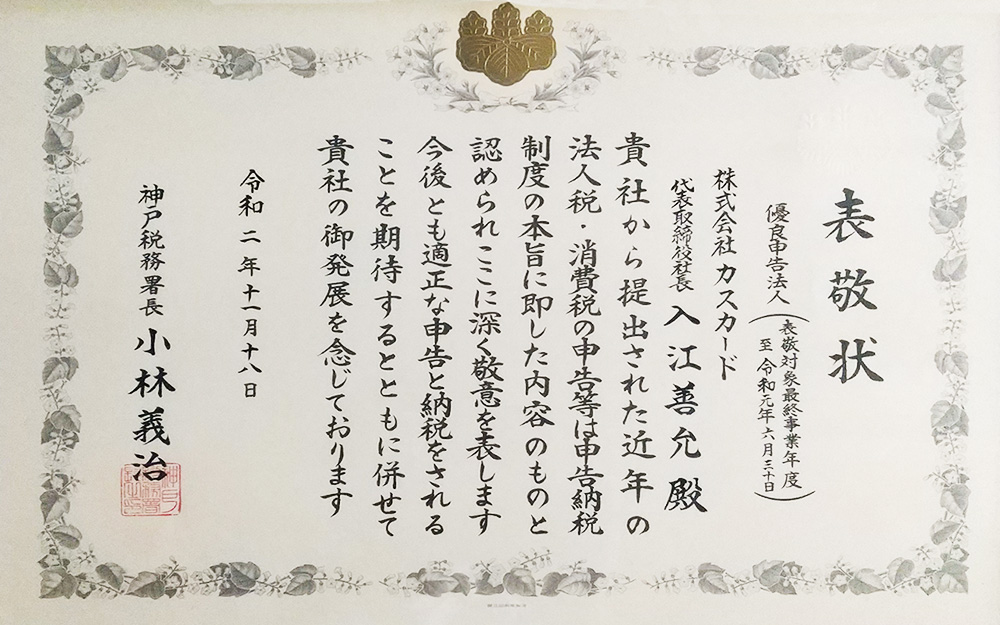 表敬状
優良申告法人
(表敬対象最終事業年度
至 令和元年六月三十日)
株式会社 カスカード
代表取締役社長 入江善允殿
貴社から提出された近年の
法人税・消費税の申告等は申告納税
制度の本旨に即した内容のものと
認められここに深く敬意を表します
今後とも適正な申告と納税をされる
ことを期待するとともに併せて
貴社の御発展を念じております
令和二年十一月十八日
神戸税務署長 小林義治